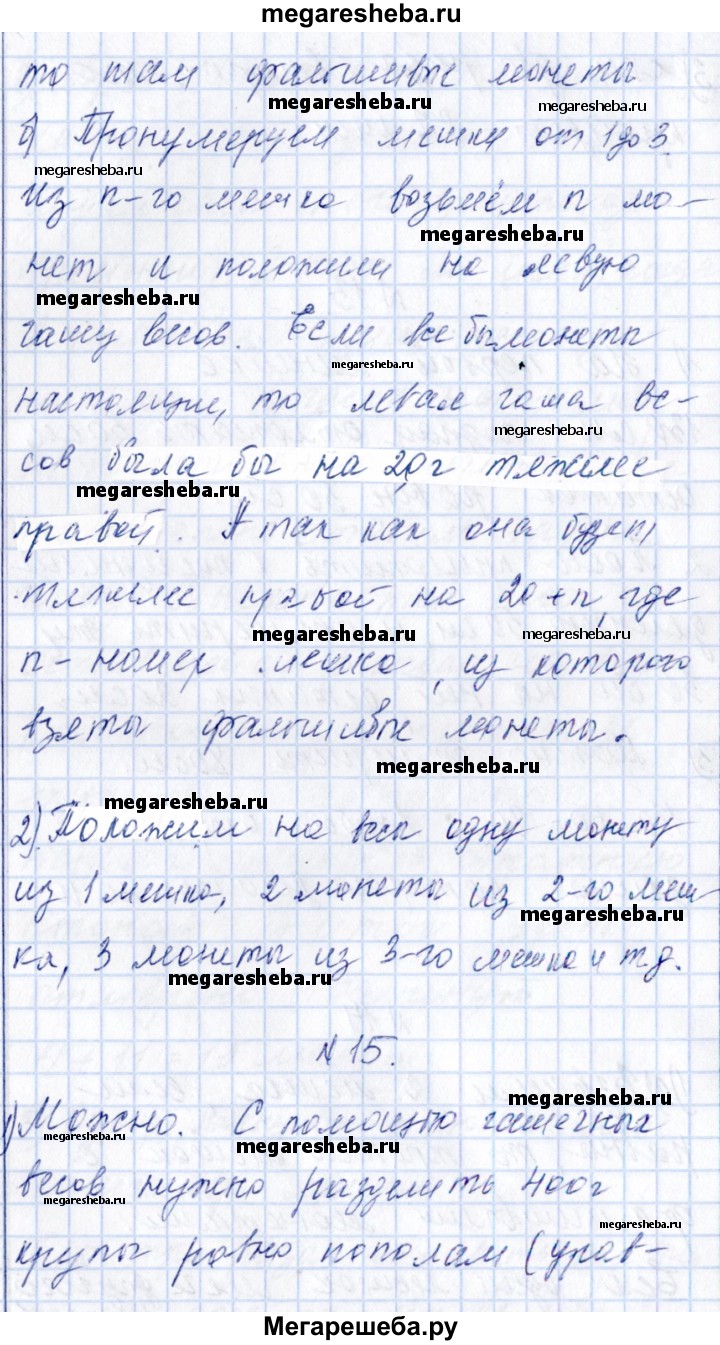 megaresheba.ru
то там фальшивые монеты
megaresheba.ru megaresheba.ru
б) Пронумеруем мешки от 1 до 3.
megaresheba.ru
Из n-го мешка возьмём n мо-
megaresheba.ru
нет и положим на левую
megaresheba.ru
чашу весов. Если все бы монеты
megaresheba.ru
настоящие, то левая чаша ве-
megaresheba.ru
сов была бы на 20 г тяжелее
megaresheba.ru
правой. А так как она будет
тяжелее правой на 20+n, где
megaresheba.ru megaresheba.ru
n - номер мешка, из которого
взяты фальшивые монеты.
megaresheba.ru
megaresheba.ru
2) Положим на весы одну монету
из 1 мешка, 2 монеты из 2-го меш-
megaresheba.ru
ка, 3 монеты из 3-го мешка и т.д.
megaresheba.ru
№ 15.
megaresheba.ru
1) Можно. С помощью чашечных
megaresheba.ru megaresheba.ru
весов нужно разделить 400 г
megaresheba.ru
megaresheba.ru
крупы ровно пополам (урав-
Мегарешеба.ру